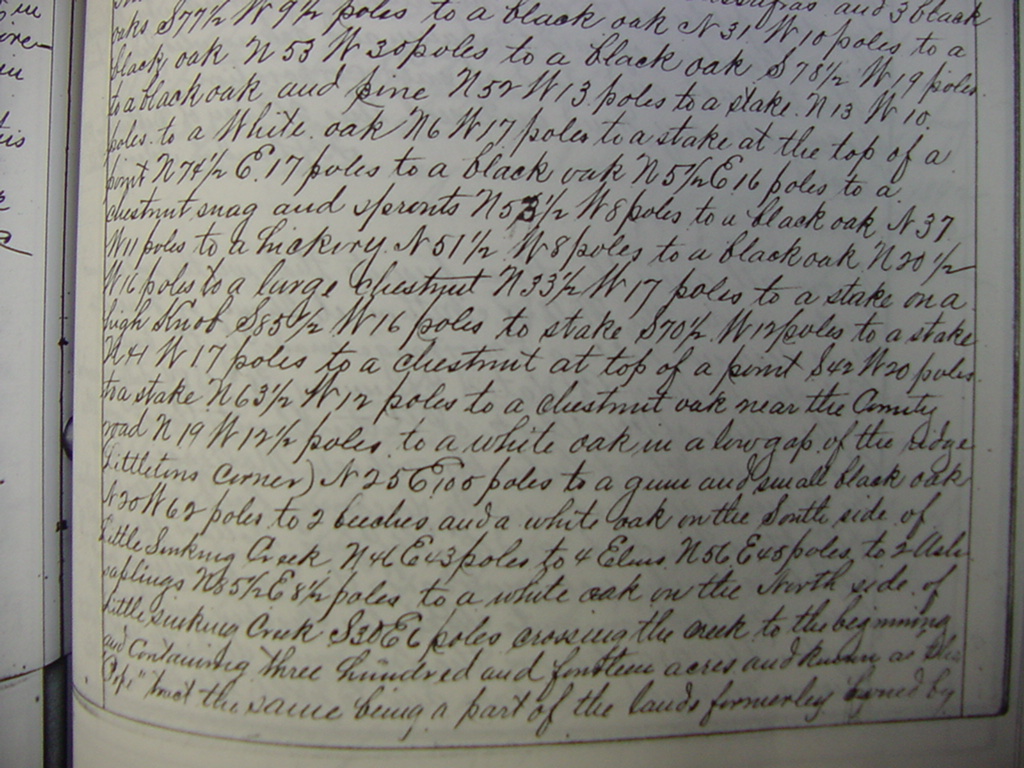 sassafras and 3 black
oaks S77½ W 9½ poles to a black oak N 31 W 10 poles to a
black oak N 53 W 30 poles to a black oak S 78½ W 19 poles
to a black oak and pine N 52 W 13 poles to a stake N 13 W 10
poles to a White oak N6 W 17 poles to a stake at the top of a
point N74½ E. 17 poles to a black oak N 5½ E 16 poles to a
chestnut snag and sprouts N53½ W 8 poles to a black oak N 37
W 11 poles to a hickory N 51½ W 8 poles to a black oak N 20½
W 16 poles to a large chestnut N 33½ W 17 poles to a stake on a
high Knob S85½ W 16 poles to stake S70½ W 12 poles to a stake
N41 W 17 poles to a chestnut at top of a point S42 W 20 poles
to a stake N 63½ W 12 poles to a chestnut oak near the County
road N 19 W 12½ poles to a white oak in a low gap of the ridge
Littletons Corner) N 25 E 100 poles to a gum and small black oak
N 20 W 62 poles to 2 beeches and a white oak on the South side of
Little Sinking Creek N 46 E 43 poles to 4 Elms N 56 E 45 poles to 2 Ash
saplings N85½ E 8½ poles to a white oak on the North side of
Little sinking Creek S30 E 6 poles crossing the creek to the beginning
and Containing three hundred and fourteen acres and known as the
Pope" tract the same being a part of the lands formerley owned by